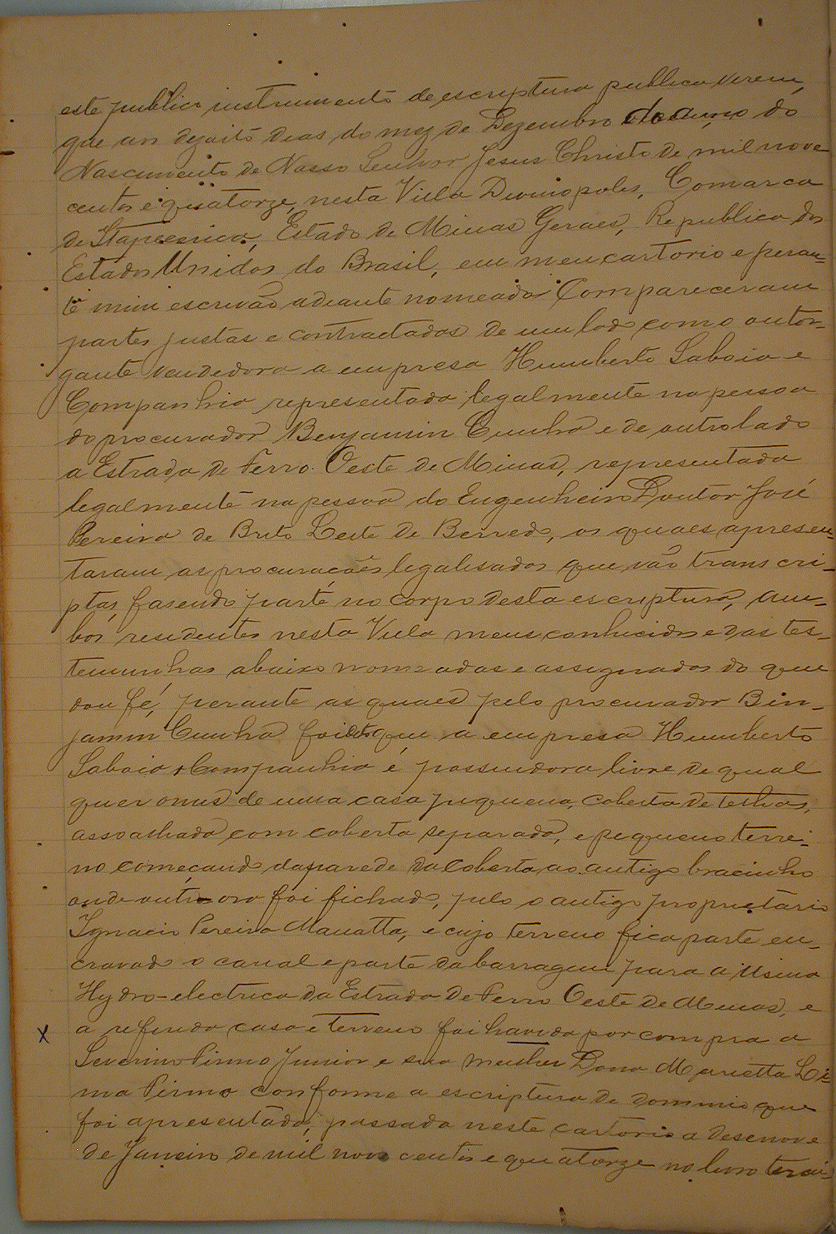 este publico instrumento de escriptura publica virem,
que aos dezoito dias do mez de Dezembro do anno do
Nascimento de Nosso Senhor Jesus Christo de mil nove
centos e quatorze, nesta Villa Divinopolis, Comarca
de Itapecerica, Estado de Minas Geraes, Republica dos
Estados Unidos do Brasil, em meu cartorio e peran-
te mim escrivão adeante nomeado Compareceram
partes justas e contractadas de um lado como outor-
gante vendedora a empresa Humberto Saboia e
Companhia representada legalmente na pessoa
do procurador Benjamin Cunha e de outro lado
a Estrada de Ferro Oeste de Minas, representada
legalmente na pessoa do Engenheiro Doutor José
Pereira de Brito Leste de Berredo, os quaes apresen-
taram as procurações legalisadas que vão transcri-
ptas, fasendo parte no corpo desta escriptura, am-
bos residentes nesta Villa meus conhecidos e das tes-
temunhas abaixo nomeadas e assignados do que
dou fé, perante as quaes pelo procurador Bin-
jamin Cunha foi dito que a empresa Humberto
Saboia & Companhia é possuidora livre de qual
quer onus de uma casa pequena, coberta de telhas,
assoalhada com coberta separada, e pequeno terre-
no começando da parede da coberta, ao antigo bracinho
onde outr-ora foi fichado, pelo o antigo proprietario
Ignacio Pereira Mauatta, e cujo terreno fica parte en-
cravado o canal e parte da barragem para a Usina
Hydro-electrica da Estrada de Ferro Oeste de Minas, e
X a referida casa e terreno foi havida por compra a
Severino Pirmo Junior e sua mulher Dona Marietta Li-
ma Pirmo conforme a escriptura de dominio que
foi apresentada, passada neste cartorio a desenove
de Janeiro de mil nove centos e quatorze no livro tercei-